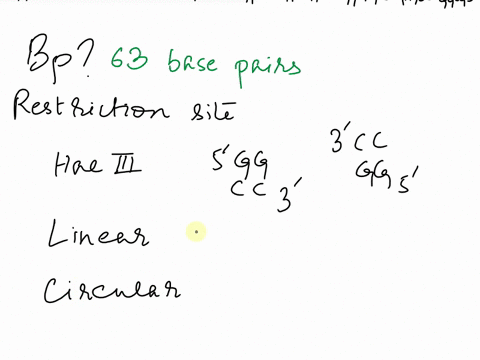 Bp? 63 base pairs
Restriction site
Hae III 5' GG 3' CC
CC 3' GG 5'
Linear
Circular